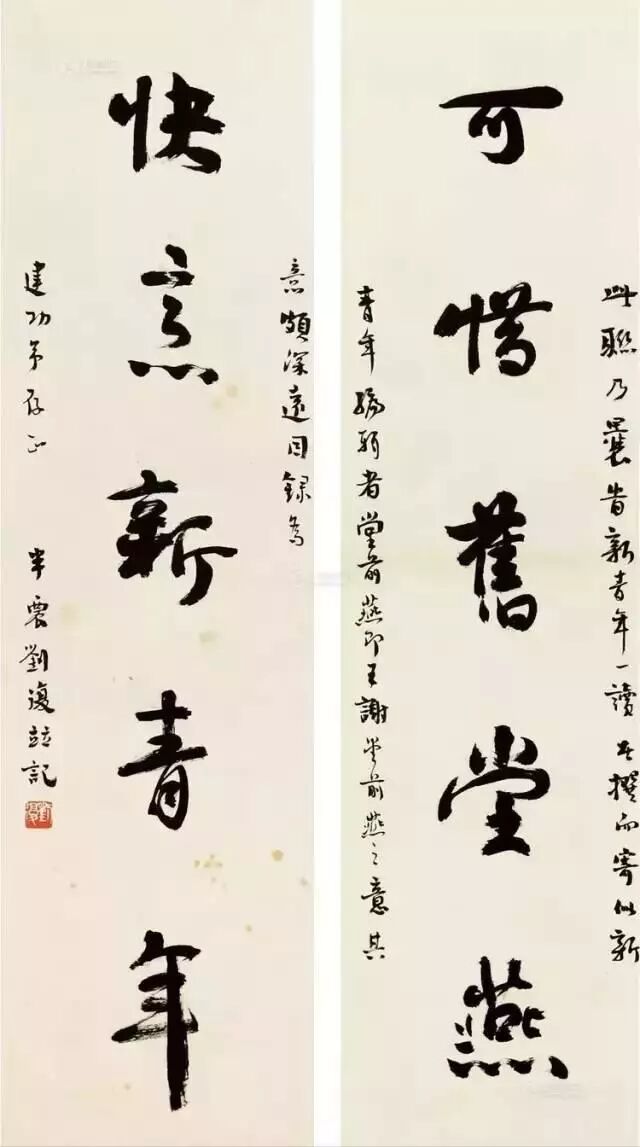 此聯乃曩昔新青年一讀者撰而寄似新
可惜舊堂燕
青年編輯者堂前燕即王謝堂前燕之意其
意頗深遠因錄為
快意新青年
建功弟存正 半農劉復並記